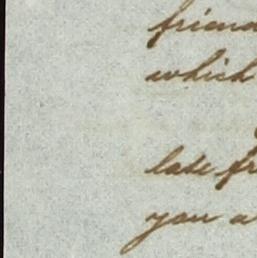 friend
which
late fr
you a